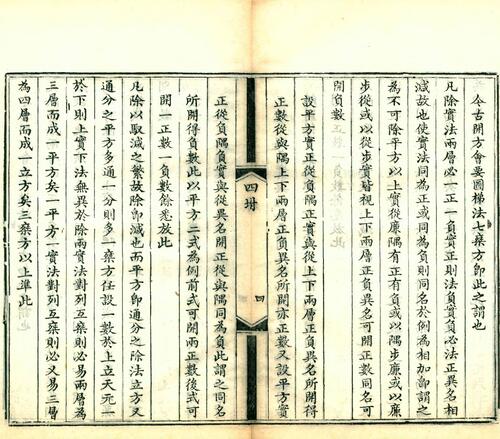 今古開方會要圖梯法七乘方即此之謂也
凡除實法兩層必一正一負實正則法負實負必法正異名相
減故也使實法同為正或同為負則同名於例為相加卸謂之
為不可除開方以上實從廉隅有正有負或以隅步廉或以廉
步從或以從步實皆視上下兩層正負異名可開數正同名可
開負數
設平方實正從負隅正實與從上下兩層正負異名所開得
正數從與隅上下兩層正負異名所開亦正數又設平方實
四卅
四
正從負隅負實與從異名開正從與隅同為負此謂之同名
所開得負數此以平方二式為例前式可開兩正數後式可
開一正數一負數餘悉放此
凡除以馭減之繁故除卸減也而平方卸通分之除法立方又
通分之平方多通一分則多一乘方任設一數於上立天元一
於下則上實下法無異於除兩實法對列互乘則必易兩層為
三層而成一平方矣一平方一實法對列互乘則必又易三層
為四層而成一立方矣三乘方以上準此